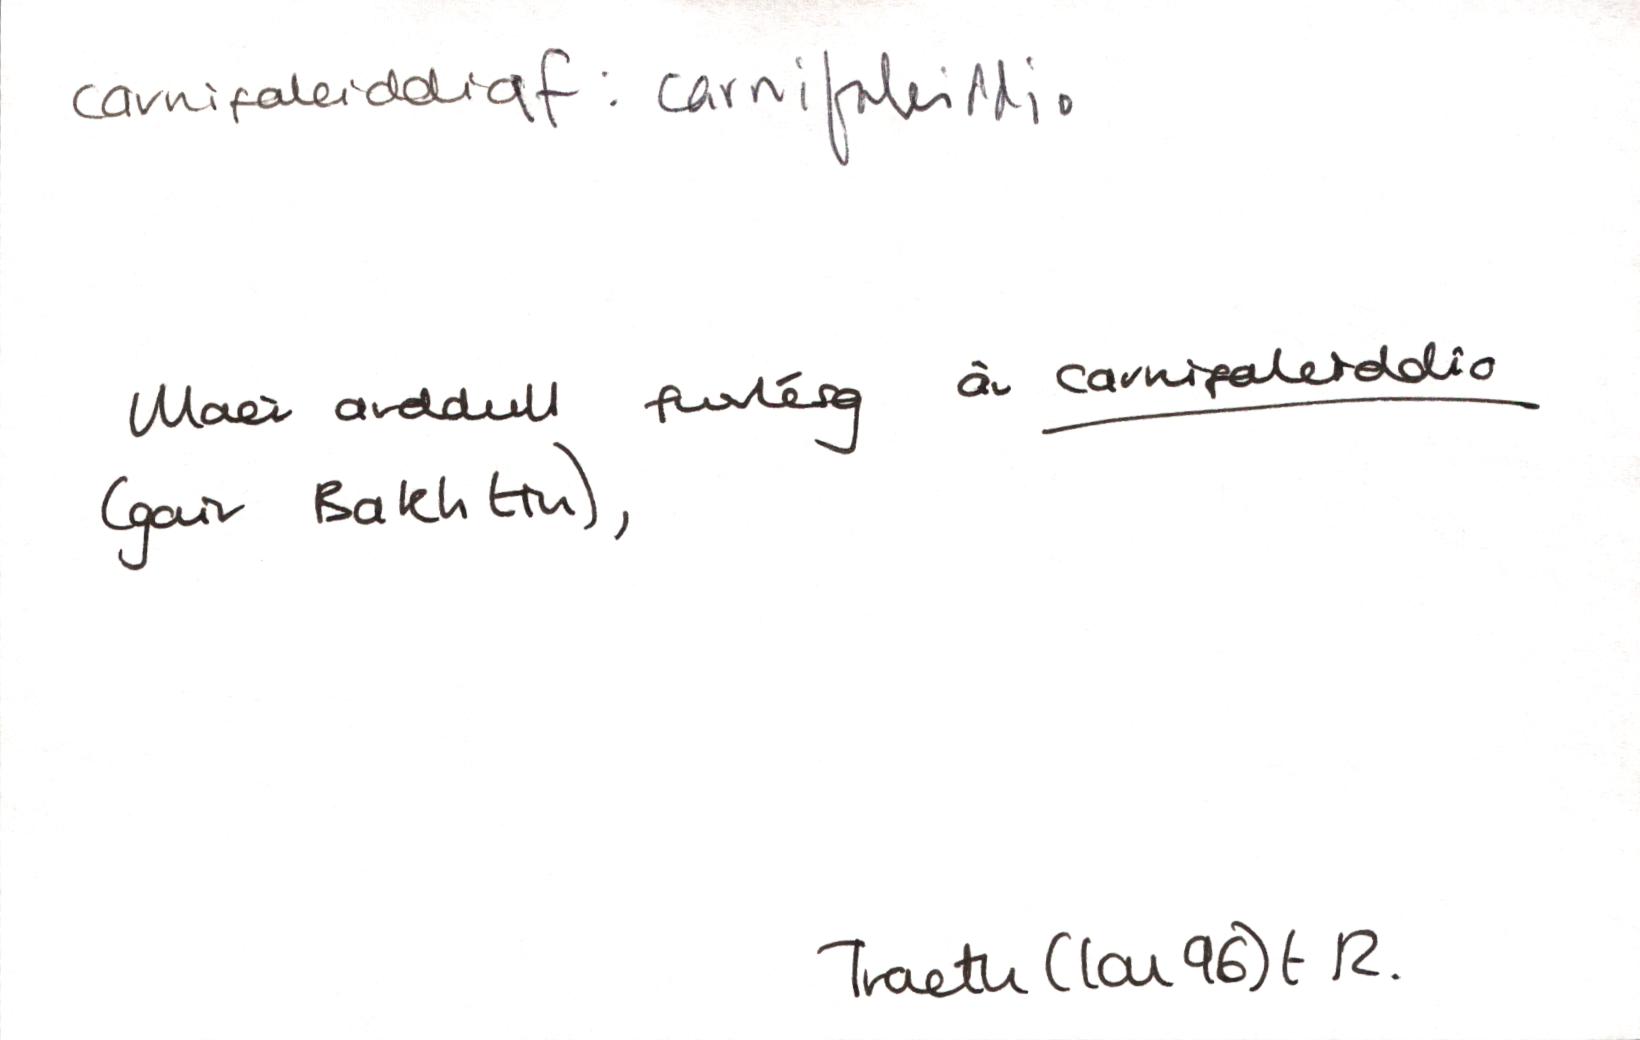 carnifaleiddiaf : carnifaleiddio
Mae'i arddull ffwlésg â'i carnifaleiddio
(gair Bakhtin),
Traeth (Ion 96) t 12.